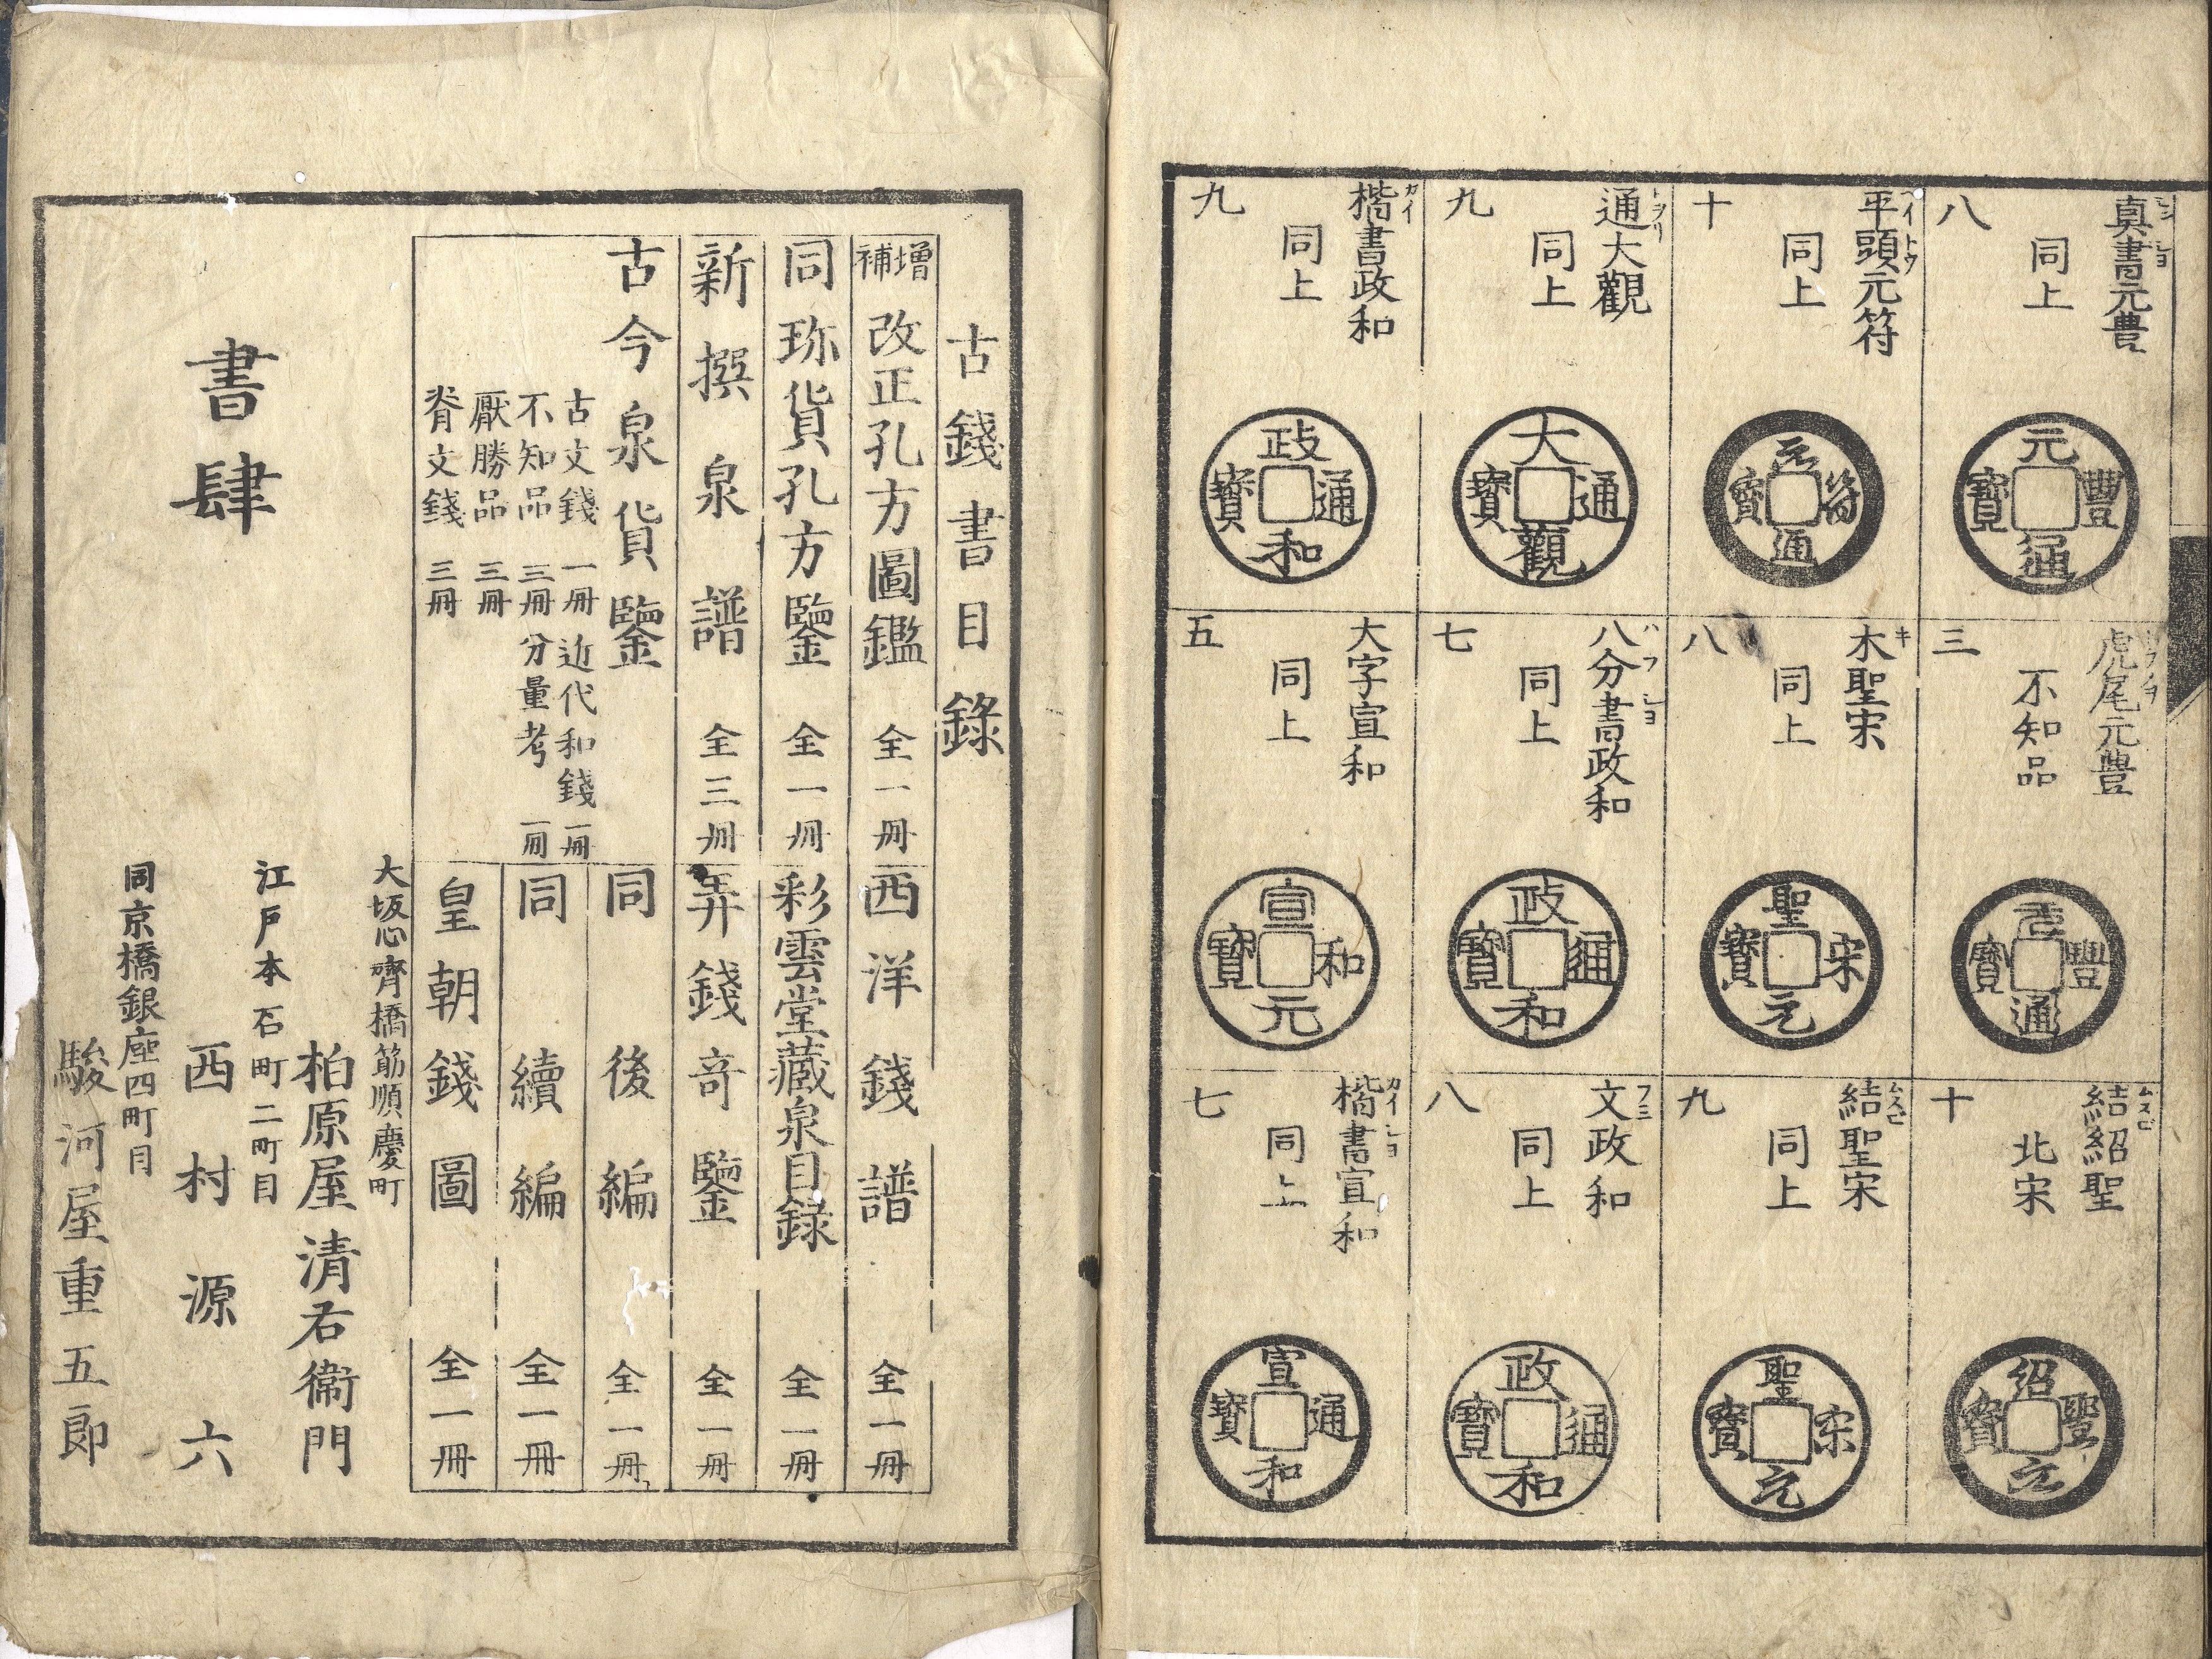 真書元豊
シン シヨ
同上
八
元豐通寳
平頭元符
ヘイトウ
同上
十
元符通寳
通大觀
トヲリ
同上
九
大觀通寳
楷書政和
カイ
同上
九
政和通寳
虎尾元豊
不知品
三
元豐通寳
木聖宋
キ
同上
八
聖宋元寳
八分書政和
ハフ シヨ
同上
七
政和通寳
大字宣和
同上
五
宣和元寳
結紹聖
ムスビ
北宋
十
紹聖元寳
結聖宋
ムスビ
同上
九
聖宋元寳
文政和
フミ
同上
八
政和通寳
楷書宣和
カイ シヨ
同上
七
宣和通寳
古錢書目錄
增補 改正孔方圖鑑 全一冊
西洋錢譜 全一冊
同珎貨孔方鑒 全一冊
彩雲堂藏泉目錄 全一冊
新撰泉譜 全三冊
弄錢竒鑒 全一冊
古今泉貨鑒
古文錢 一冊 近代和錢 一冊
不知品 三冊 分量考 一冊
厭勝品 三冊
脊文錢 三冊
同後編 全一冊
同續編 全一冊
皇朝錢圖 全一冊
書肆
大坂心齊橋筋順慶町
柏原屋清右衞門
江戸本石町二町目
西村源六
同京橋銀座四町目
駿河屋重五郎